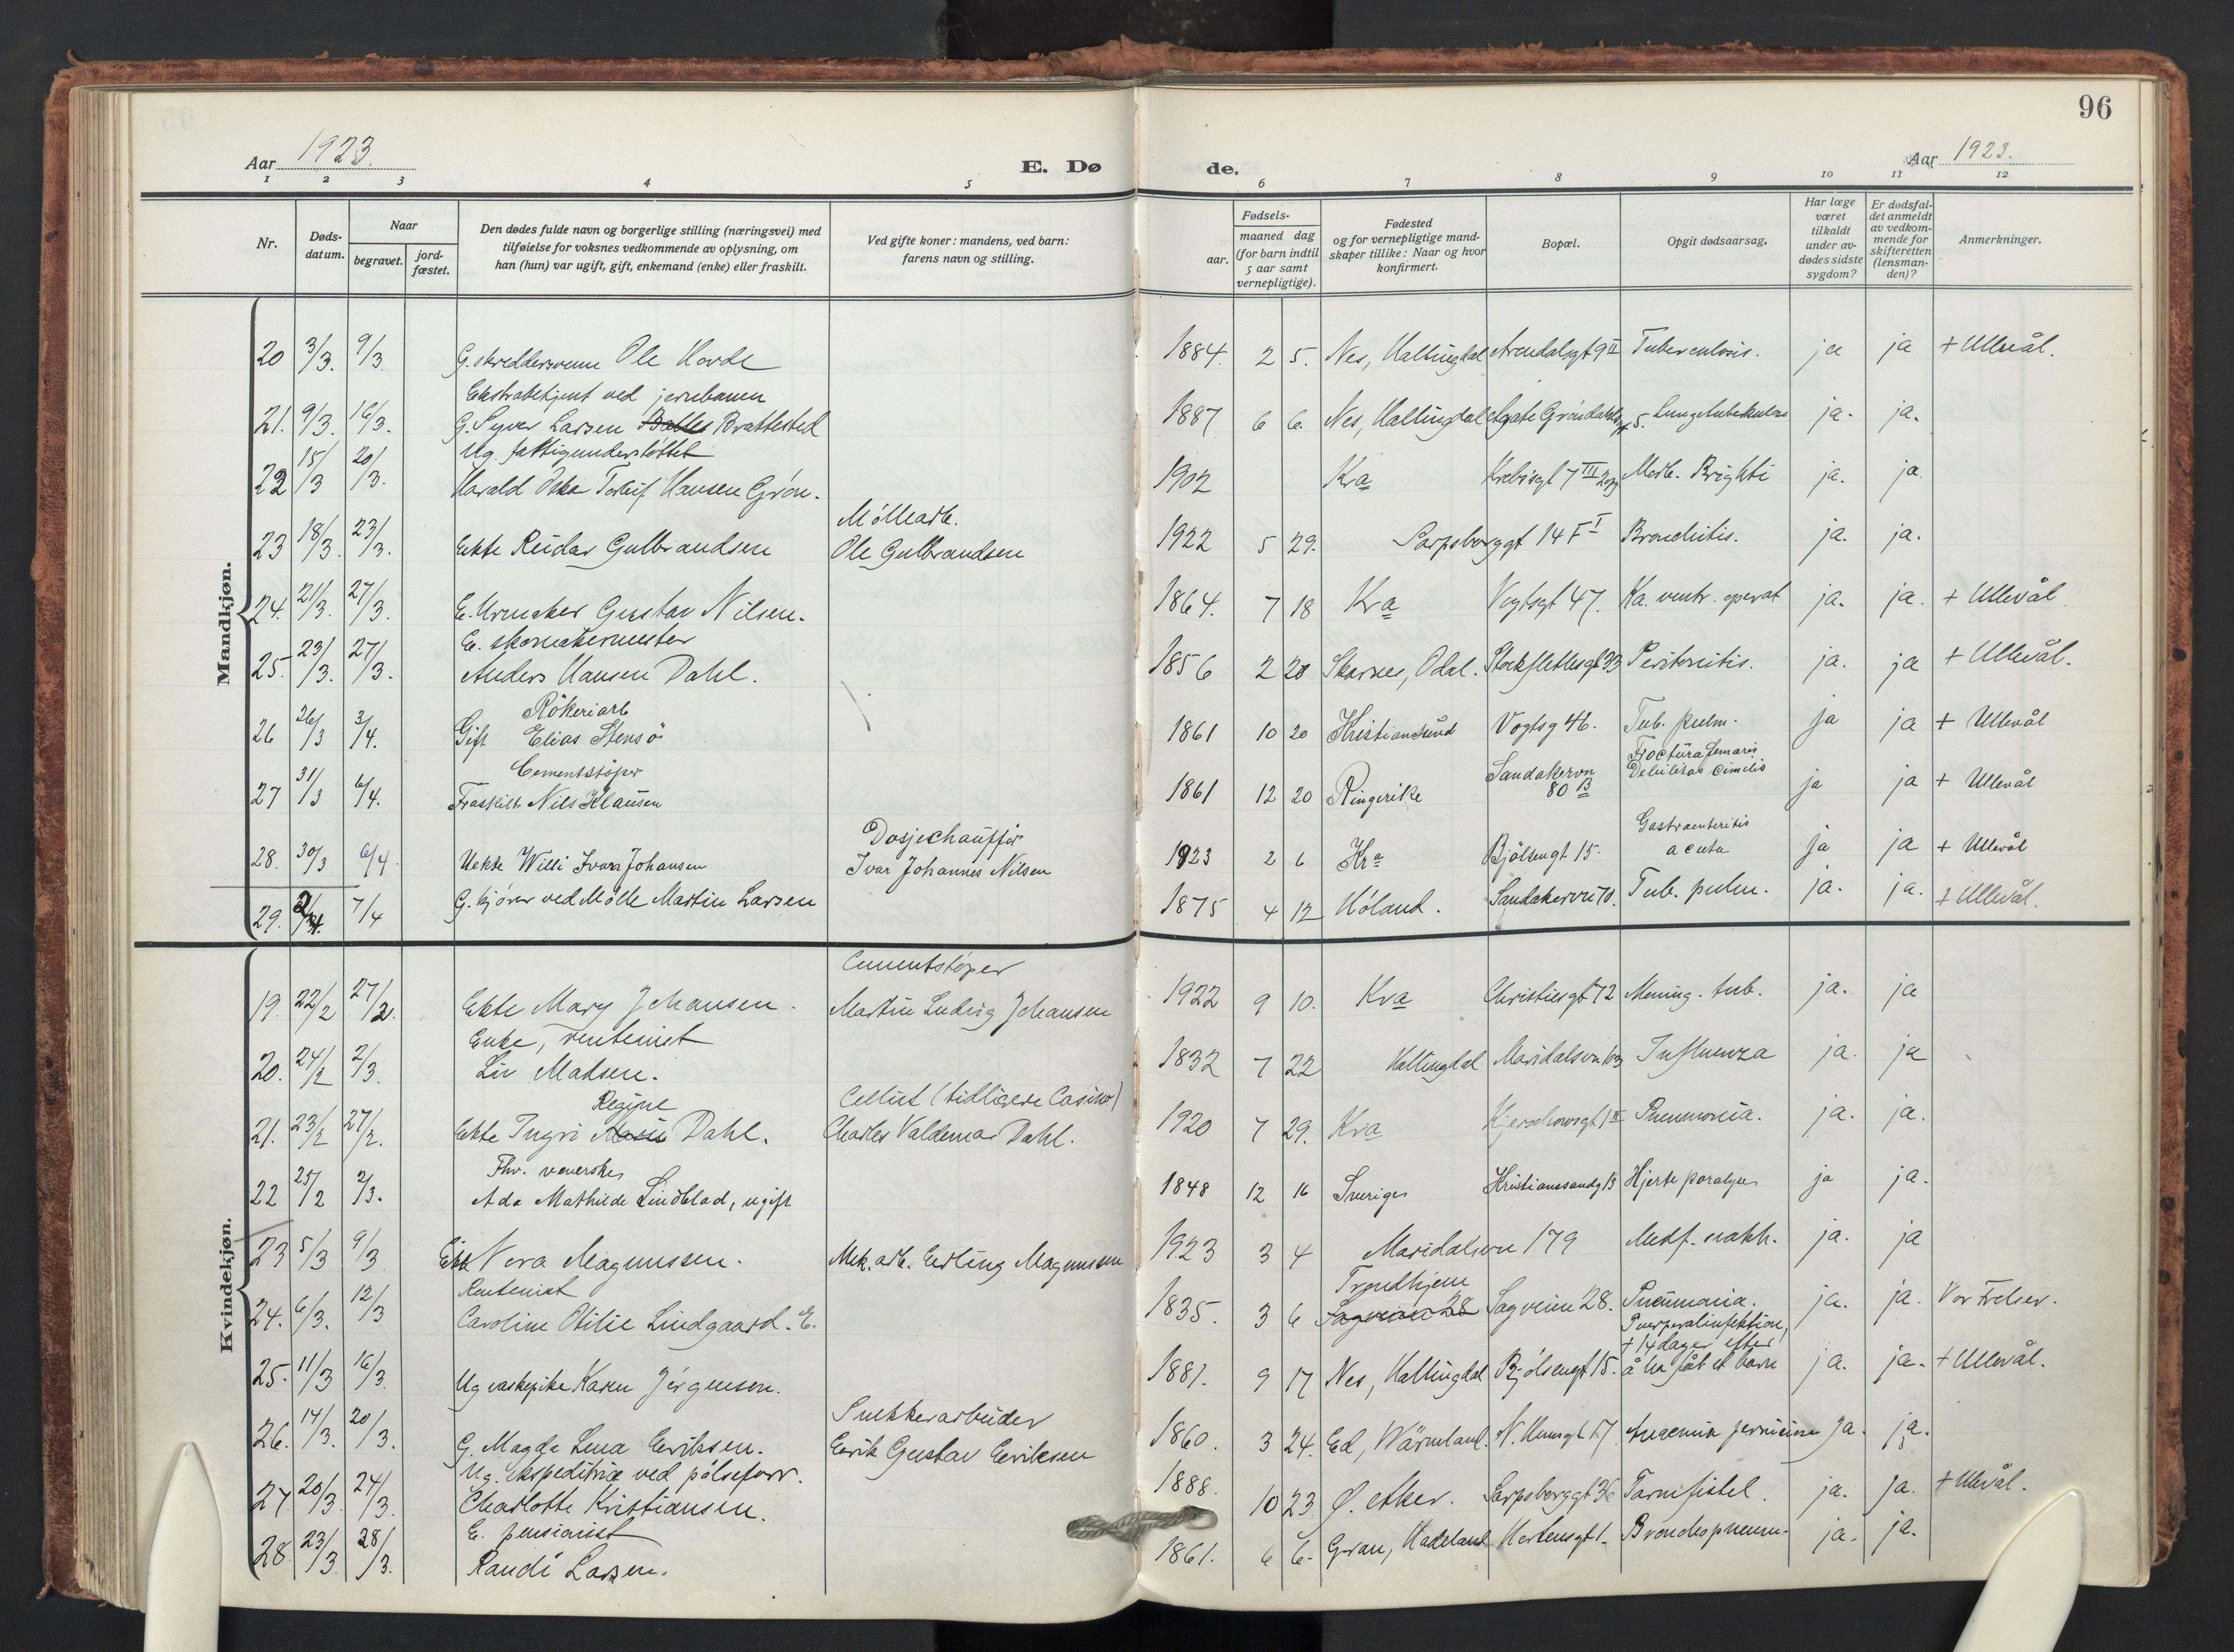 96
Aar 1923.
E. Døde.
Aar 1923.
1 2 3 4 5 6 7 8 9 10 11 12
Nr.
Døds-datum.
Naar
begravet.
jord-fæstet.
Den dødes fulde navn og borgerlige stilling (næringsvei) med
tilføielse for voksnes vedkommende av oplysning, om
han (hun) var ugift, gift, enkemand (enke) eller fraskilt.
Ved gifte koner: mandens, ved barn:
farens navn og stilling.
Fødsels-
aar.
maaned dag
(for barn indtil
5 aar samt
vernepligtige).
Fødested
og for vernepligtige mand-
skaper tillike: Naar og hvor
konfirmert.
Bopæl.
Opgit dødsaarsag.
Har læge
været
tilkaldt
under av-
dødes sidste
sygdom?
Er dødsfal-
det anmeldt
av vedkom-
mende for
skifteretten
(lensman-
den)?
Anmerkninger.
Mandkjøn.
20 3/3. 9/3. G. skreddersvenn Ole Hovde 1884. 2 5. Nes, Hallingdal Arendalsgt 9 II Tuberculosis. ja ja + Ullevål.
Ekstrabetjent ved jernebanen
21. 9/3. 16/3. G. Syver Larsen Brattested 1887 6 6. Nes, Hallingdal Agate Grøndahlsgt. 5. Lungetuberkulose ja. ja.
Ug. fattigunderstøttet
22 15/3 20/3. Harald Oskar Torleif Hansen Grøn. 1902 Kra Krebsgt 7 III Morb. Brighti ja. ja.
Møllearb.
23 18/3. 23/3. Ekte Reidar Gulbrandsen Ole Gulbrandsen 1922 5 29. Sarpsborggt 14 F I Bronchitis. ja. ja.
24. 21/3. 27/3. E. Urmaker Gustav Nilsen. 1864. 7 18 Kra Vogtsgt 47. Ka. ventr. operat ja. ja. + Ullevål
E. skomakermester
25. 23/3. 27/3. Anders Hansen Dahl. 1856 2 20 Skarnes, Odal. Stockflethsgt 33 Peritonitis. ja. ja + Ullevål.
Røkeriarb
26 26/3 3/4. Gift Elias Stensö 1861 10 20 Kristiansund Vogtsg 46. Tub. pulm. ja ja + Ullevål
Cementstøper
27 31/3 6/4. Fraskilt Nils Klausen 1861 12 20 Ringerike Sandakervn 80 B Fractura femoris ja ja + Ullevål
Drosjechauffør
28. 30/3 6/4. Uekte Willi Ivar Johansen Ivar Johannes Nilsen 1923 2 6 Kra Bjölsengt 15. Gastroenteritis acuta ja ja + Ullevål
29. 2/4. 7/4 G. kjører ved Mølle Martin Larsen 1875 4 12 Høland. Sandakervei 70. Tub. pulm. ja. ja. + Ullevål.
Kvindekjøn.
Cementstøper
19. 22/2 27/2. Ekte Mary Johansen. Martin Ludvig Johansen 1922 9 10. Kra Christiesgt 72 Mening. tub. ja. ja
Enke, rentenist
20. 24/2 2/3. Liv Madsen. 1832 7 22 Hallingdal Maridalsvn 63 Influenza ja. ja
Regine
Cellist (tidligere Casino)
21. 23/2 27/2. Ekte Ingri Marie Dahl. Charles Valdemar Dahl. 1920 7 29. Kra Hjerschowsgt 1 II Pneumonia. ja. ja.
Fhv. veverske
22 25/2 2/3. Ada Mathilde Lindblad, ugift 1848 12 16 Sverige Kristianssandg 13 Hjerteparalyse ja ja.
23 5/3 9/3 Ekte Vera Magnussen. Mek. arb. Erling Magnussen 1923 3 4 Maridalsvn 179 Medf. svakh. ja. ja
Rentenist
Trondhjem
24. 6/3. 12/3 Caroline Otilie Lindgaard. E. 1835. 3 6 Sagveien 28 Sagveien 28. Pneumonia. ja. ja. Vor Frelser.
Puerperalinfektion,
+ 14 dager efter
25. 11/3 16/3 Ug vaskepike Karen Jörgensen. 1881. 9 17 Nes, Hallingdal Bjölsengt 15. å ha fåt et barn ja. ja. + Ullevål.
Snekkerarbeider
26. 14/3. 20/3. G. Magda Lena Eriksen. Eerik Gustav Eeriksen 1860. 3 24. Ed, Wärmland. Anaemia perniciosa ja. ja.
Ug. ekspeditrice ved pølseforr.
27 20/3. 24/3. Charlotte Kristiansen. 1888. 10 23 Ø. Aker. Sarpsborggt 3c Tarmfistel. ja. ja. + Ullevål.
E. pensionist
28. 23/3. 28/3. Randi Larsen. 1861. 6 6. Gran, Hadeland Hertensgt 1. Bronchopneum. ja. ja.